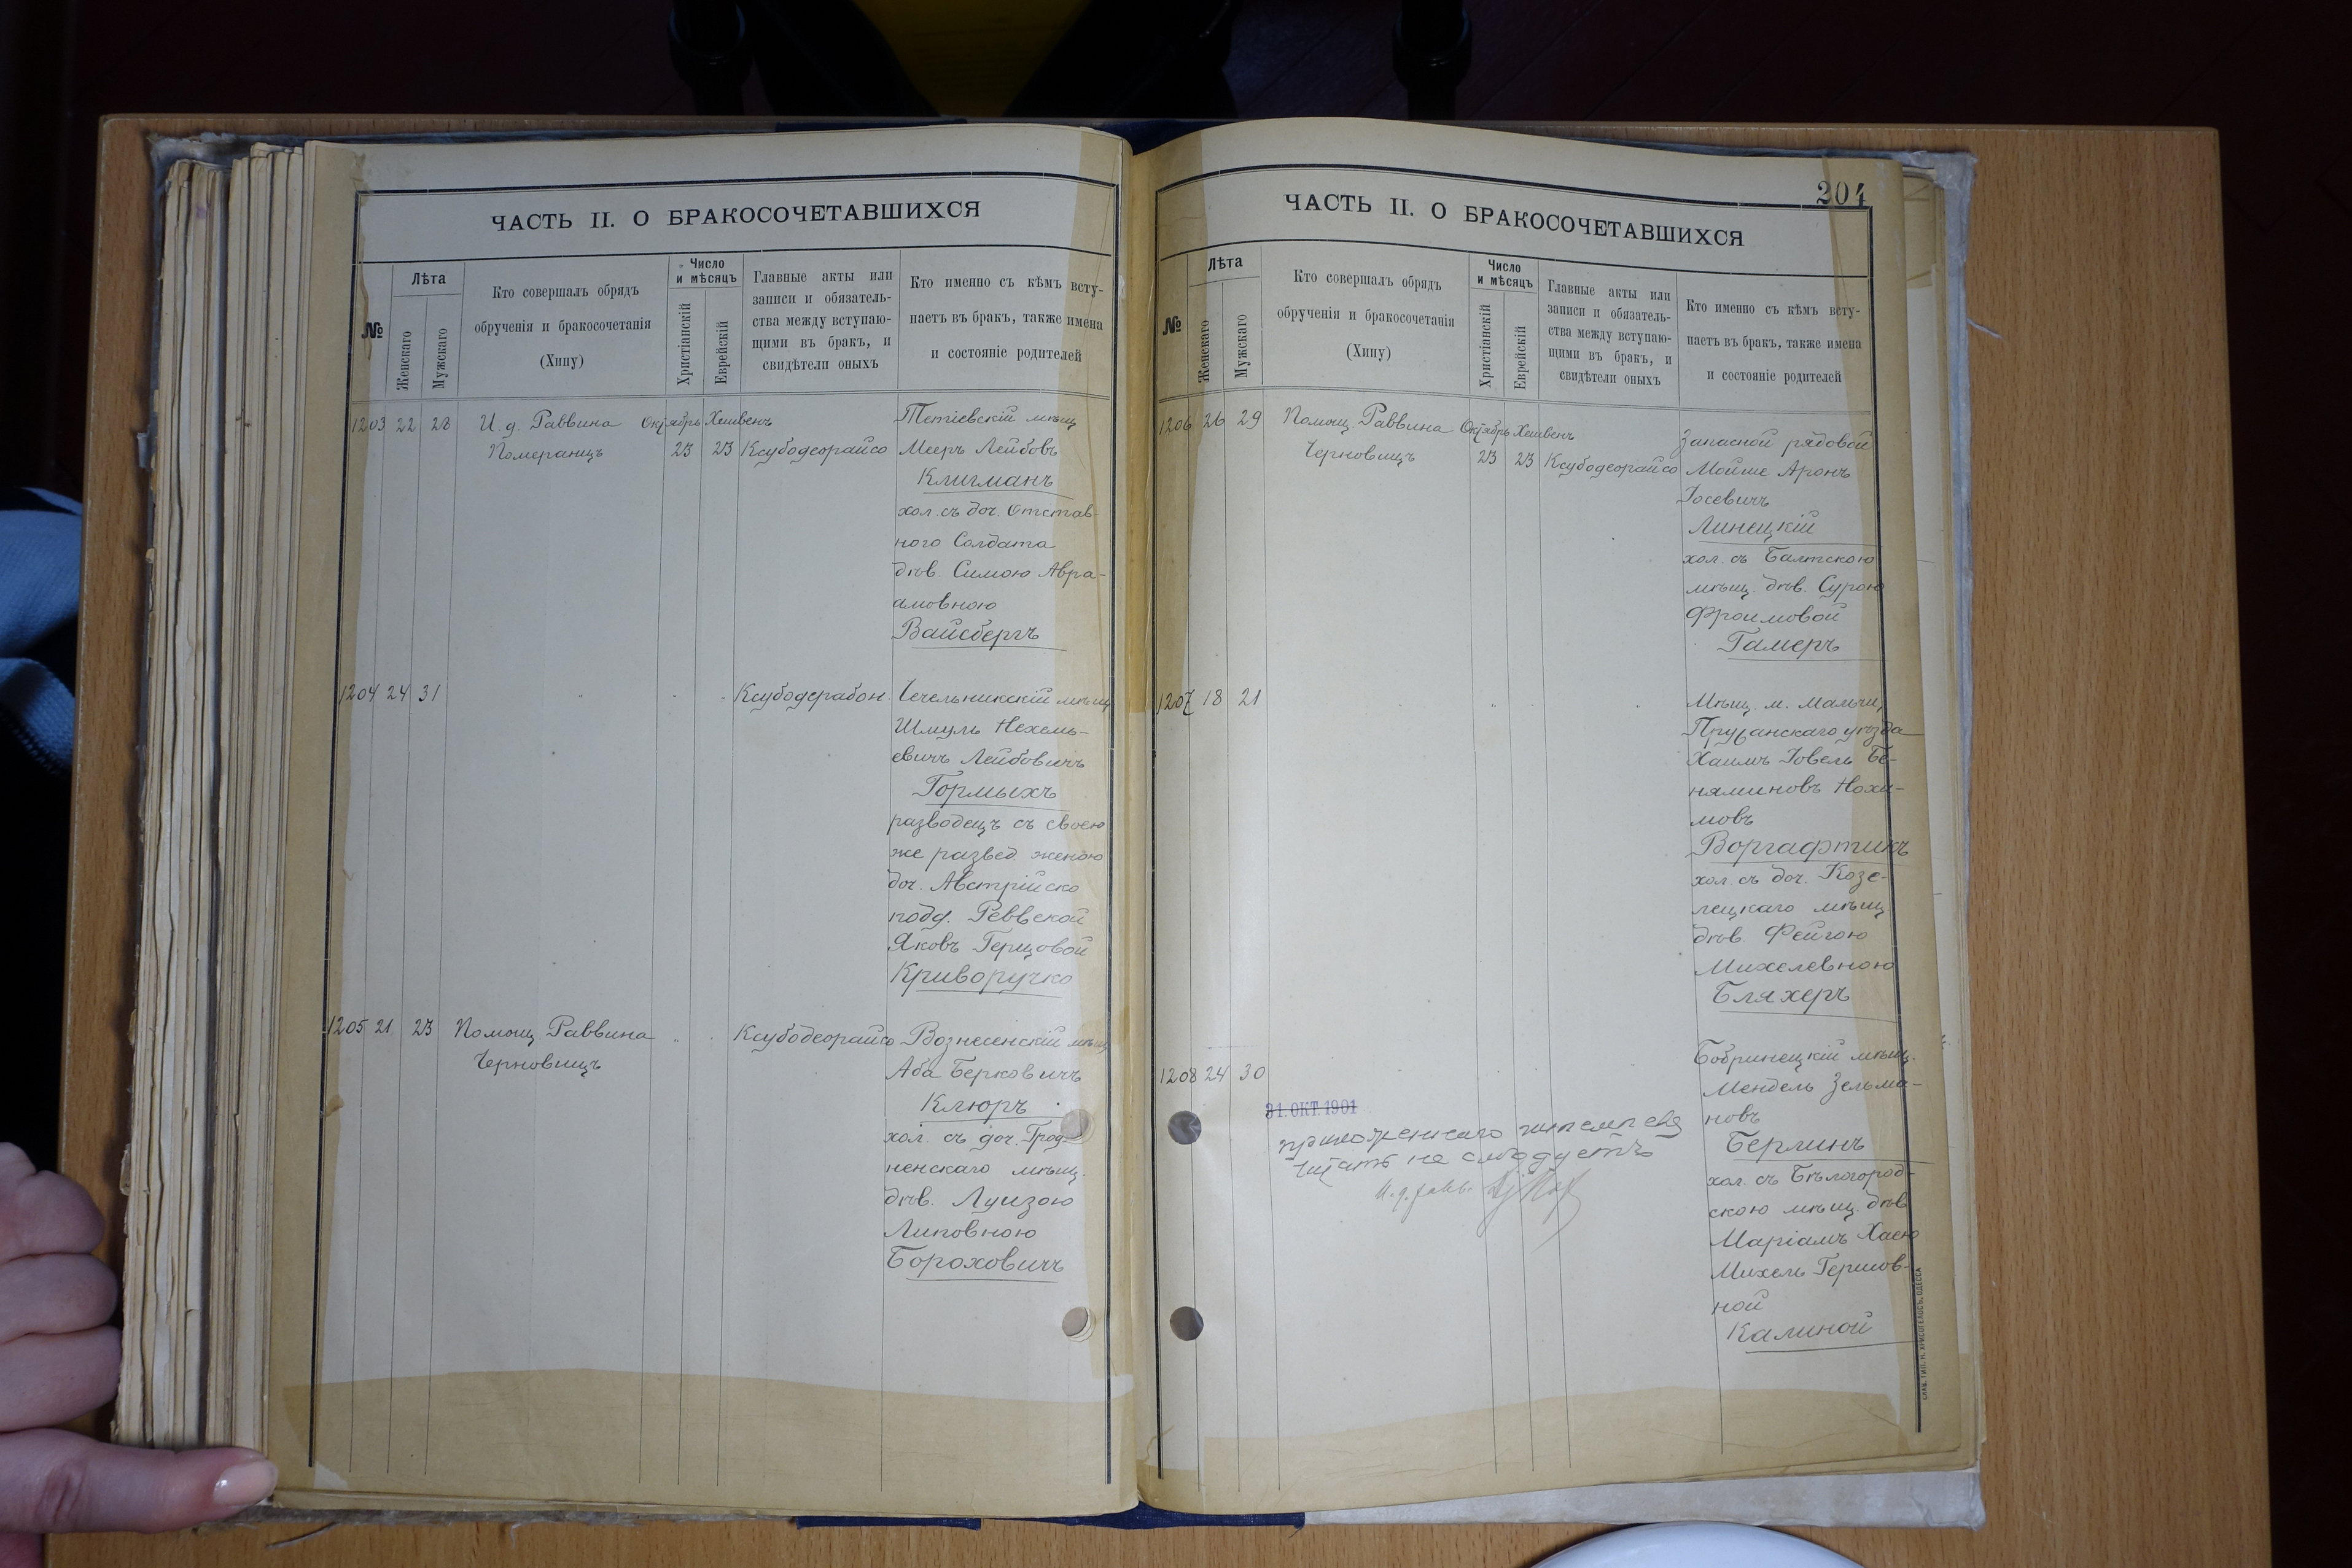 ЧАСТЬ II. О БРАКОСОЧЕТАВШИХСЯ
№
Лѣта
Женскаго
Мужскаго
Кто совершалъ обрядъ
обрученія и бракосочетанія
(Хипу)
Число
и мѣсяцъ
Христіанскій
Еврейскій
Главные акты или
записи и обязатель-
ства между вступаю-
щими въ бракъ, и
свидѣтели оныхъ
Кто именно съ кѣмъ всту-
паетъ въ бракъ, также имена
и состояніе родителей
1203 22 28 И. д. Раввина Октябрь Хешвенъ Тетіевскій мѣщ
Померанцъ 23 23 Ксубодеорайсо Мееръ Лейбовъ
Клигманъ
хол. съ доч. Отстав-
ного Солдата
дѣв. Симою Авра-
амовною
Вайсбергъ
1204 24 31 Ксубодерабон. Чечельникскій мѣщ
Шмуль Нехемь-
евичъ Лейбовичъ
Гормыхъ
разводецъ съ своею
же развед. женою
доч. Австрійско
подд. Реввекой
Яковъ Герцовой
Криворучко
1205 21 23 Помощ. Раввина Ксубодеорайсо Вознесенскій мѣщ
Черновицъ Аба Берковичъ
Клюръ
хол. съ доч. Грод-
ненскаго мѣщ.
дѣв. Луизою
Липовною
Бороховичъ
204
ЧАСТЬ II. О БРАКОСОЧЕТАВШИХСЯ
№
Лѣта
Женскаго
Мужскаго
Кто совершалъ обрядъ
обрученія и бракосочетанія
(Хипу)
Число
и мѣсяцъ
Христіанскій
Еврейскій
Главные акты или
записи и обязатель-
ства между вступаю-
щими въ бракъ, и
свидѣтели оныхъ
Кто именно съ кѣмъ всту-
паетъ въ бракъ, также имена
и состояніе родителей
1206 26 29 Помощ. Раввина Октябрь Хешвенъ Запасной рядовой
Черновицъ 23 23 Ксубодеорайсо Мойше Аронъ
Іосевичъ
Линецкій
хол. съ Балтскою
мѣщ. дѣв. Сурою
Фроимовой
Гамеръ
1207 18 21 Мѣщ. м. Мальчи,
Пружанскаго уѣзда
Хаимъ Іовель Бе-
няминовъ Нохи-
мовъ
Воргафтикъ
хол. съ доч. Козе-
лецкаго мѣщ
дѣв. Фейгою
Михелевною
Бляхеръ
1208 24 30 Бобринецкій мѣщ.
Мендель Зельма-
новъ
Берлинъ
хол. съ Бѣлогород-
скою мѣщ. дѣв
Маріамъ Хаею
Михель Гершов-
ной
Калиной
31. ОКТ. 1901
приложеннаго штемпеля
читать не слѣдуетъ
И. д. равв.
СЛАВ. ТИП. Н. ХРИСОГЕЛОСЪ, ОДЕССА